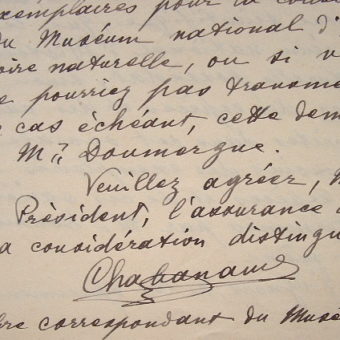 exemplaires pour la cons
du Muséum national d'
oire naturelle, ou si v
e pourriez pas transme
e cas échéant, cette dem
M.r Doumergue.
Veuillez agréer, M
Président, l'assurance
a considération distingu
Chabanaud
bre correspondant du Musé